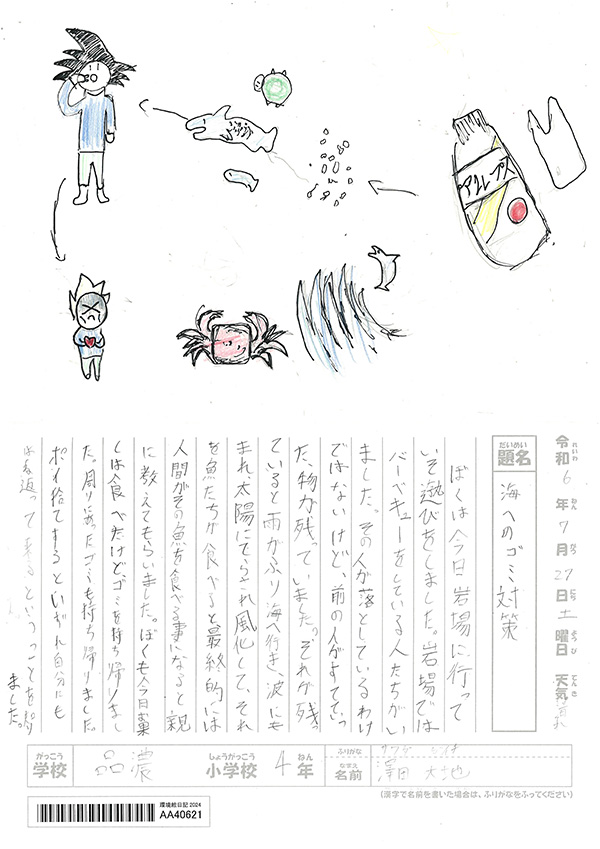 アルプス
令和6年7月27日土曜日 天気 晴れ
れいわ ねん がつ にち ようび てんき
だいめい
題名 海へのゴミ対策
ぼくは今日岩場に行って
いそ遊びをしました。岩場では
バーベキューをしている人たちがい
ました。その人が落としているわけ
ではないけど、前の人がすてていっ
た、物が残っていました。それが残っ
ていると雨がふり海へ行き、波にも
まれ太陽にてらされ風化して、それ
を魚たちが食べると最終的には
人間がその魚を食べる事になると親
に教えてもらいました。ぼくも今日菓
しは食べたけどゴミを持ち帰りまし
た。周りに落ちたゴミも持ち帰りました。
ポイ捨てするといずれ自分にも
はね返って来るということを
ました。
がっこう
学校 品濃
しょうがっこう
小学校 4年
ねん
ふりがな
なまえ
名前 澤田 大地
(漢字で名前を書いた場合は、ふりがなをふってください)
環境絵日記 2024
AA40621